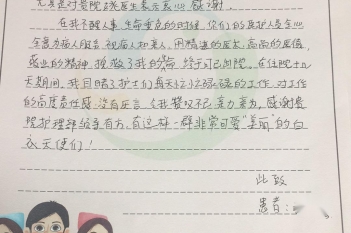 尤其是对贵院张医生表示衷心感谢。
在我不醒人事、生命垂危的时候，你们的医护人员全心
全意为病人服务，视病人如亲人，用精湛的医术，高尚的医德，
敬业的精神，挽救了我的命，终于可已出院，在住院十几
天期间，我目睹了护士们每天忙忙碌碌的工作，对工作
的高度责任感，没有厌言，令我赞叹不已，亲力亲为，感谢贵
院护理部领导有方，有这样一群非常可爱“美丽”的白
衣天使们！
此致
患者：